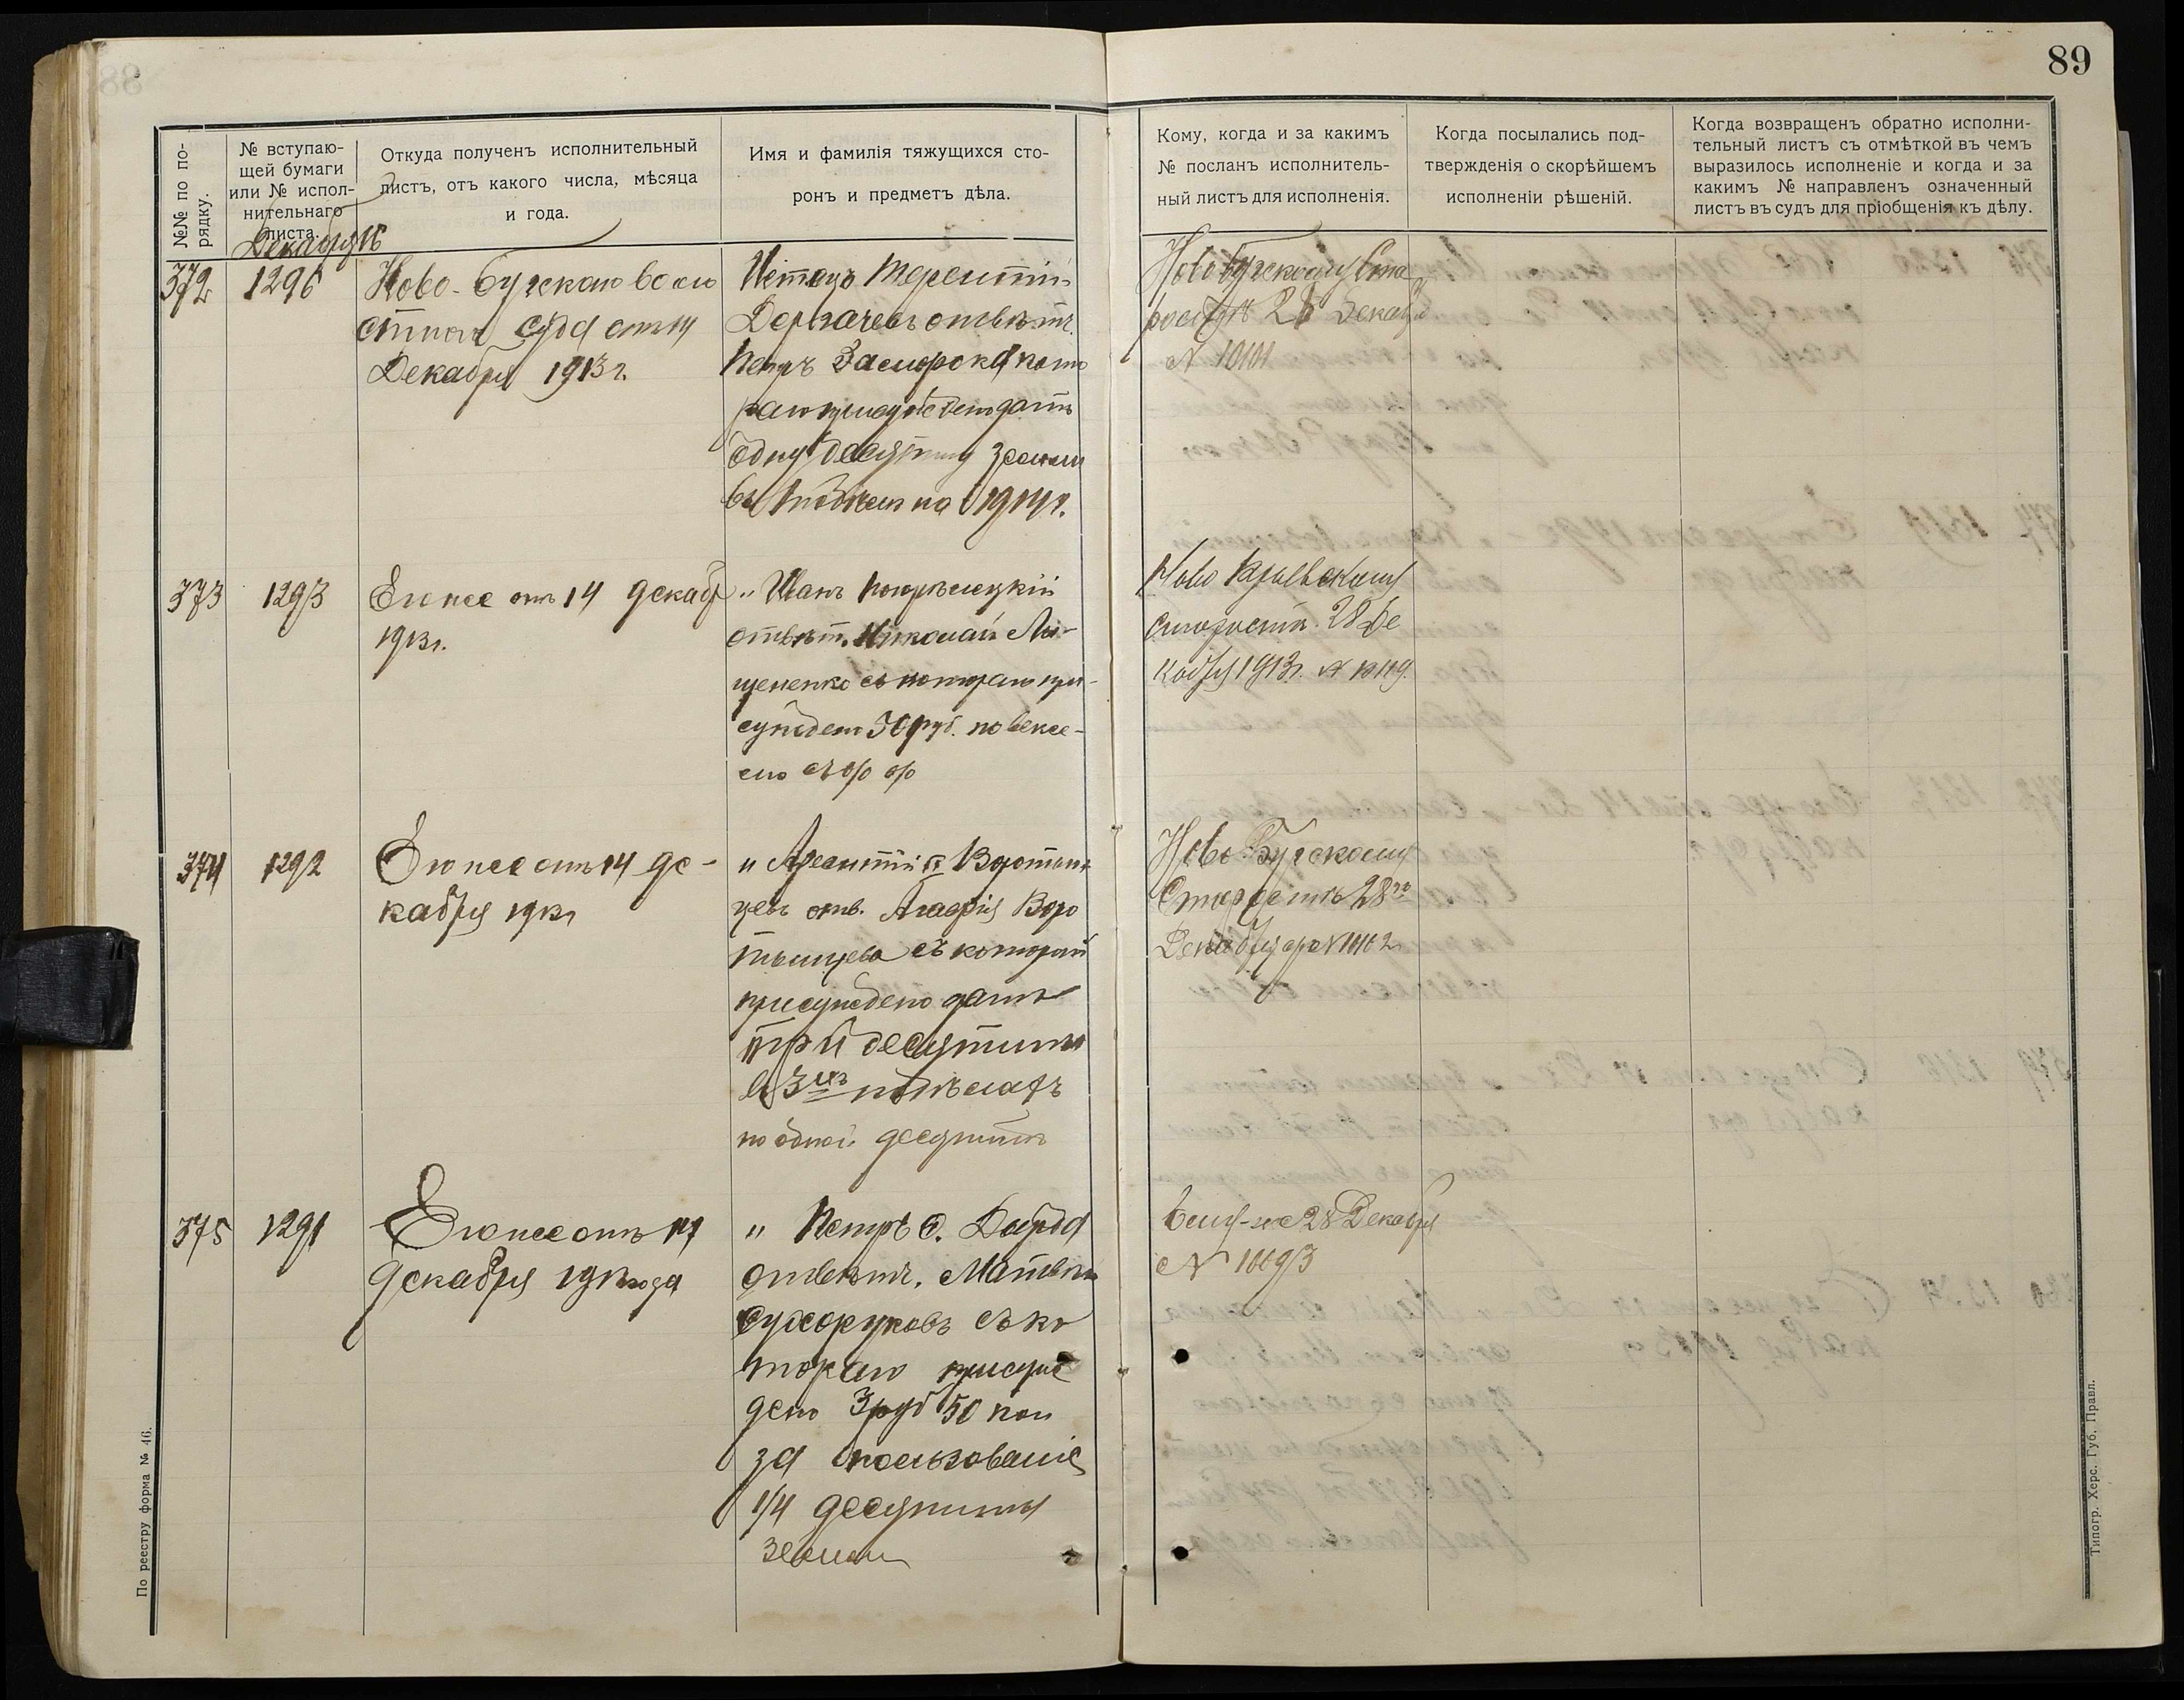 89
№№ по по-
рядку.
№ вступаю-
щей бумаги
или № испол-
нительнаго
листа.
Откуда полученъ исполнительный
листъ, отъ какого числа, мѣсяца
и года.
Имя и фамилія тяжущихся сто-
ронъ и предметъ дѣла.
Кому, когда и за какимъ
№ посланъ исполнитель-
ный листъ для исполненія.
Когда посылались под-
твержденія о скорѣйшемъ
исполненіи рѣшеній.
Когда возвращенъ обратно исполни-
тельный листъ съ отмѣткой въ чемъ
выразилось исполненіе и когда и за
какимъ № направленъ означенный
листъ въ судъ для пріобщенія къ дѣлу.
Декабря
372
1296
Ново-Бугскаго воло
стного суда отъ 14
Декабря 1913 г.
Истецъ Терентій
Дергачевъ отвѣтч.
Петръ
присужде дать
одну десятину земли
въ на 1914 г.
Ново Бугскому Ста
ростѣ 28 Декаб
№ 10101
373
1293
Ею же отъ 14 декаб
1913 г.
" Иванъ
отвѣт. Николай Ли-
щененко съ котораго при-
сужден 30 руб. по вексе-
лю съ % %
Ново
Старостѣ. 28 Де
кабря 1913 г. №
374
1292
Ею же отъ 14 де-
кабря 1913 г
" Воротын
цевъ отв. Воро
тынцева съ которой
присуждено дать
три десятины
въ 3хъ
по одной десятинѣ
Ново Бугскому
Старостѣ 28го
Декабря № 10102
375
1291
Ею же отъ 14
декабря 1913 года
" Петръ С. Дырда
отвѣтч. Матвѣй
Сухоруковъ съ ко
тораго присуж
дено 3 руб 50 коп
за пользованіе
1/4 десятины
земли
Ему-же 28 Декабря
№ 10093
По реестру форма № 46.
Типогр. Херс. Губ. Правл.